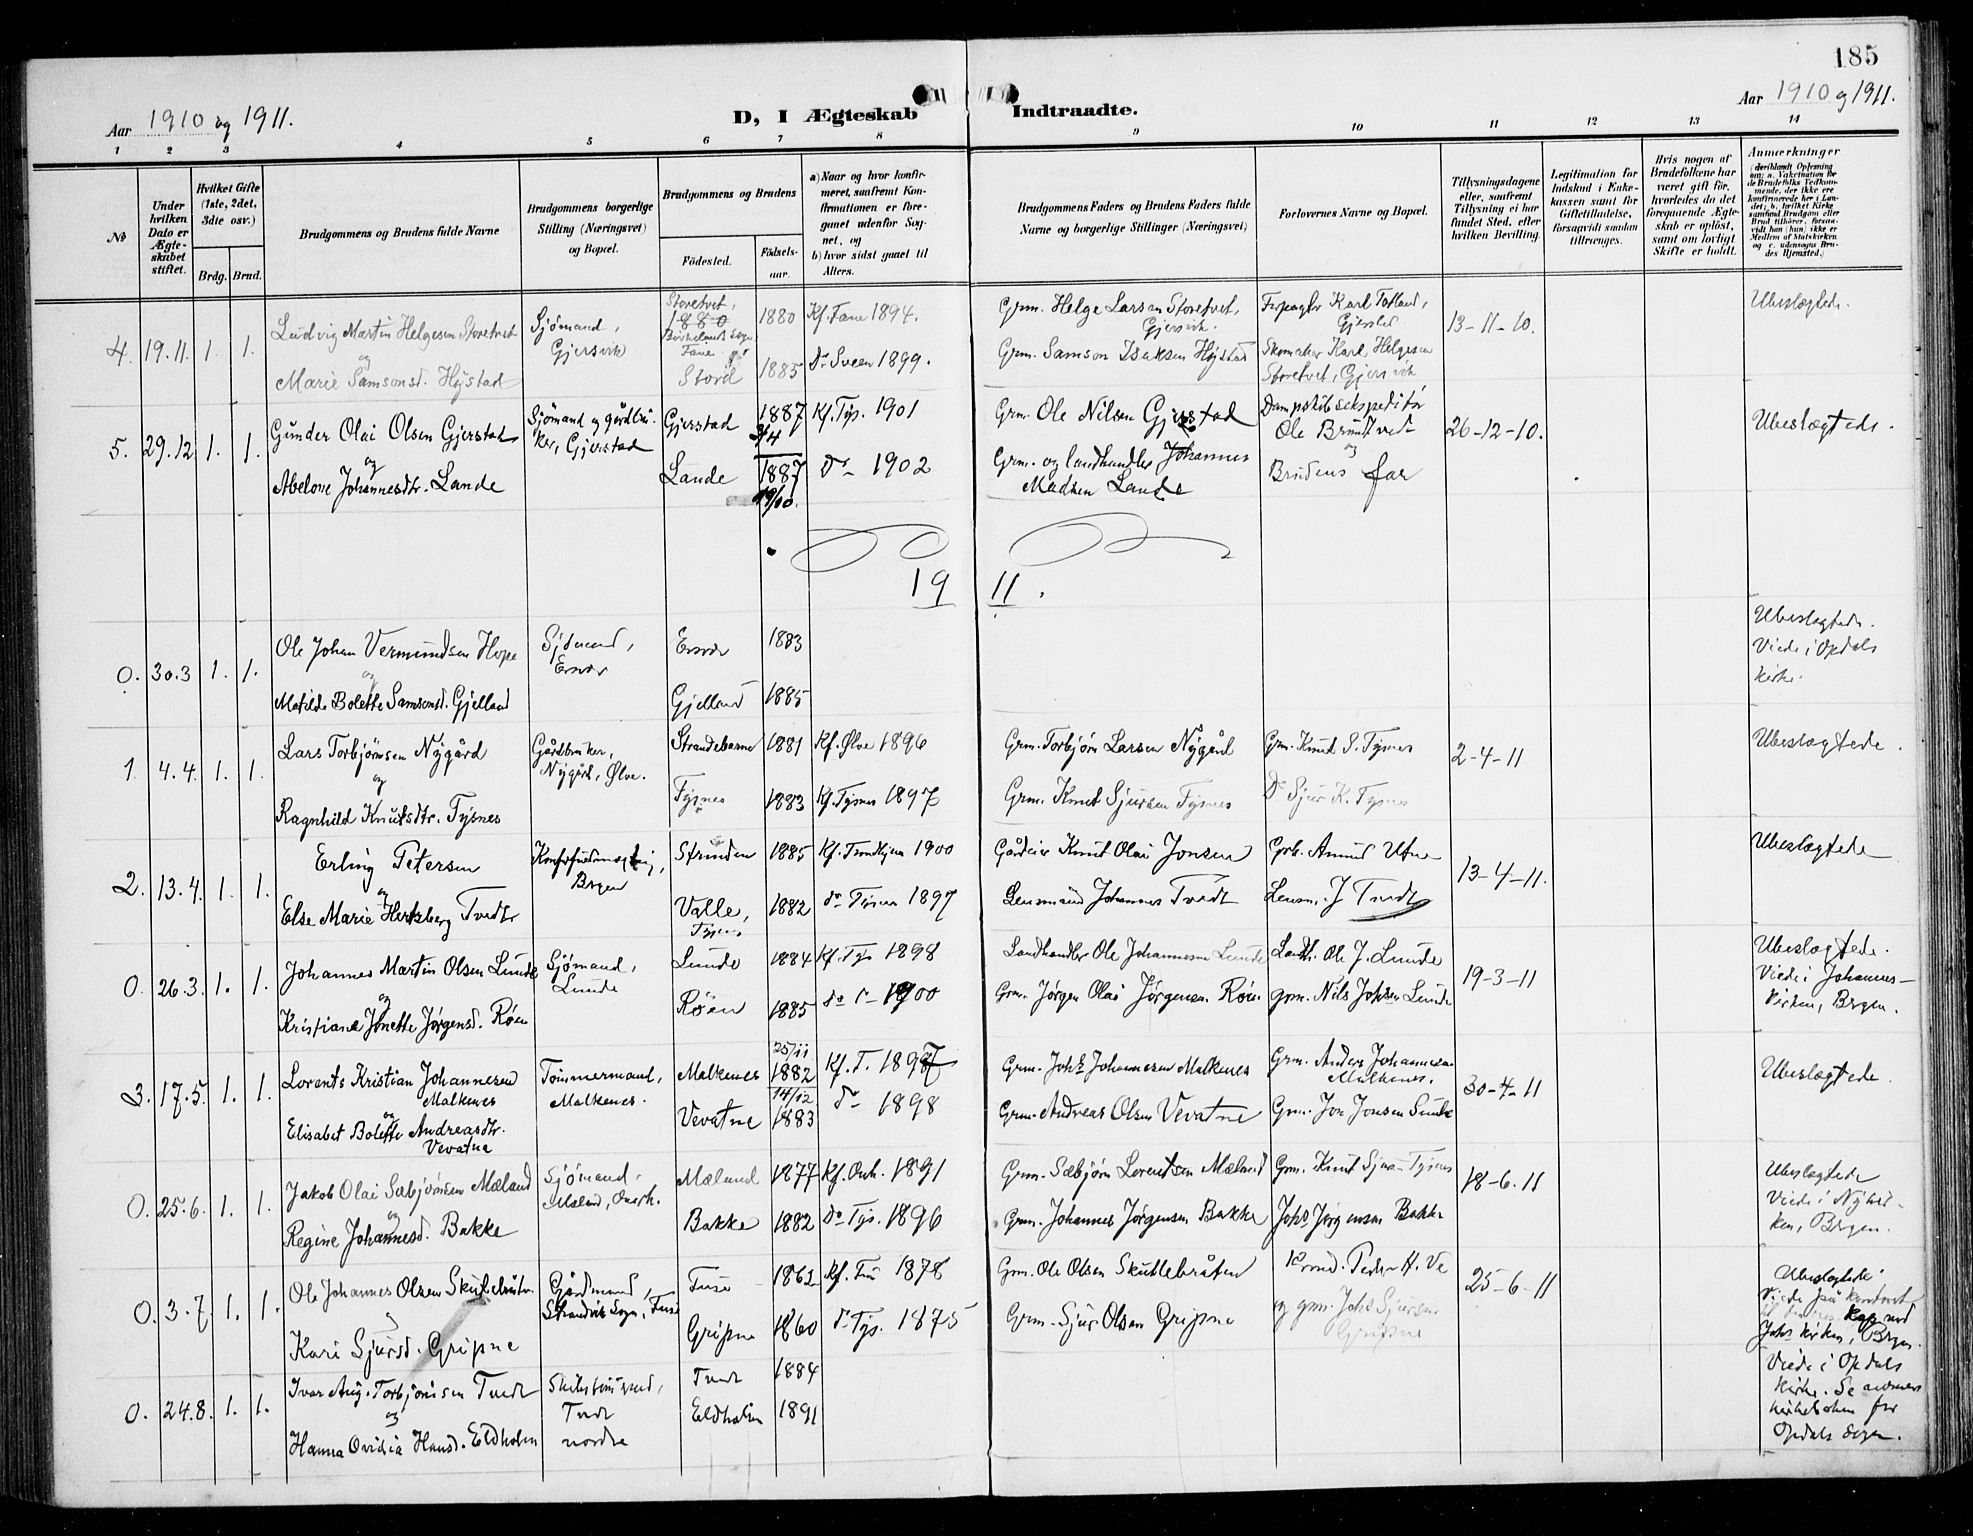 185
Aar 1910 og 1911.
D, I Ægteskab Indtraadte.
Aar 1910 og 1911.
1 2 3 4 5 6 7 8 9 10 11 12 13 14
No
Under hvilken Dato er Ægteskabet stiftet.
Hvilket Gifte (1ste, 2det, 3die osv.)
Brdg. Brud.
Brudgommens og Brudens fulde Navne
Brudgommens borgerlige Stilling (Næringsvei) og Bopæl.
Brudgommens og Brudens
Fødested. Fødselsaar.
a) Naar og hvor konfirmeret, saafremt Konfirmationen er foregaaet udenfor Sognet, og
b) hvor sidst gaaet til Alters.
Brudgommens Faders og Brudens Faders fulde Navne og borgerlige Stillinger (Næringsvei)
Forlovernes Navne og Bopæl.
Tillysningsdagene eller, saafremt Tillysning ei har fundet Sted, efter hvilken Bevilling.
Legitimation for Indskud i Enkekassen samt for Giftetilladelse, forsaavidt saadan tiltrænges.
Hvis nogen af Brudefolkene har været gift før, hvorledes da det foregaaende Ægteskab er opløst, samt om lovligt Skifte er holdt.
Anmærkninger
(deriblandt Oplysning om: a. Vakcination for de Brudefolks Vedkommende, der ikke ere konfirmerede her i Landet; b. hvilket Kirkesamfund Brudgom eller Brud tilhører, forsaavidt han (hun) ikke er Medlem af Statskirken og c. udensogns Brudes Hjemsted.)
4. 19.11. 1. 1.
Ludvig Martin Helgesen Storetvet
og
Marie Samsonsd. Høystad
Sjømand,
Gjersvik
Storetvet,
1880
Birkelands sogn
Fane
Stord
1880
1885
Kf. Fane 1894.
Do Sveen 1899.
Grm. Helge Larsen Storetvet,
Gjersvik.
Grm. Samson Isaksen Høystad
Karl
Skomaker Karl Helgesen
Storetvet, Gjersvik
13-11-10.
Ubeslægtede.
5. 29.12 1. 1.
Gunder Olai Olsen Gjerstad
og
Abelone Johannesdtr. Lande
Sjømand og gårdbruker, Gjerstad
Gjerstad
Lande
1887
1887
Kf. Tys. 1901
Do 1902
Grm. Ole Nilsen Gjerstad
Grm. og landhandler Johannes
Madsen Lande
Dampskibsekspeditør
Ole
og
Brudens far
26-12-10.
Ubeslægtede.
19 11.
0. 30.3 1. 1.
Ole Johan Vermundsen Hope
og
Matilde Bolette Samsonsd. Gjelland
Sjømand,
Ersvær
Ersvær
Gjelland
1883
1885
Ubeslægtede.
Viede i Opdals
kirke.
1 4.4. 1. 1.
Lars Torbjørnsen Nygård
og
Ragnhild Knutsdtr. Tysnes
Gårdbruker,
Nygård, Ølve.
Strandebarm
Tysnes
1881
1883
Kf. Ølve 1896
Kf. Tysnes 1897
Grm. Torbjørn Larsen Nygård
Grm. Knut Sjursen Tysnes
Grm. Knut S. Tysnes
Do Sjur K. Tysnes
2-4-11
Ubeslægtede.
2. 13.4. 1. 1.
Erling Petersen
og
Else Marie Hertzberg Tvedt
Bergen
Strinden
Valle,
Tysnes
1885
1882
Kf. Trondhjem 1900
do Tysnes 1897
Gårdeier Knut Olai Jonsen
Lensmand Johannes Tvedt
Grb. Amund Utne
Lensm. J Tvedt
13-4-11.
Ubeslægtede
0. 26.3. 1. 1.
Johannes Martin Olsen Lunde
og
Kristiane Jonette Jørgensd. Røen
Sjømand,
Lunde
Lunde
Røen
1884
1885
Kf. Tys 1898
do 1900
Landhandler Ole Johannesen Lunde
Grm. Jørgen Olai Jørgensen Røen.
Landh. Ole J. Lunde
grm. Nils Johsen Lunde
19-3-11
Ubeslægtede.
Viede i Johannes-
kirken, Bergen.
3. 17.5. 1. 1.
Lorents Kristian Johannesen
Malkenes
og
Elisabet Bolette Andreasdtr.
Vevatne
Tømmermand,
Malkenes.
Malkenes
Vevatne
25/11
1882
14/12
1883
Kf. T. 1897
do 1898
Grm. Johs Johannesen Malkenes
Grm. Andreas Olsen Vevatne
Grm. Anders Johannesen
Malkenes.
Grm. Jon Jonsen Lunde
30-4-11
Ubeslægtede.
0. 25.6. 1. 1.
Jakob Olai Sæbjørnsen Mæland
og
Regine Johannesd. Bakke
Sjømand.
Mæland, Onarh.
Mæland
Bakke
1877
1882
Kf. Onh. 1891
Do Tys. 1896
Grm. Sæbjørn Lorentsen Mæland
Grm. Johannes Jørgensen Bakke
Grm. Knut Sjursen Tysnes
Johs Jørgensen Bakke
18-6.11
Ubeslægtede
Viede i Nykirken, Bergen.
0. 3.7. 1. 1.
Ole Johannes Olsen Skutlebråten
Kari Sjursd. Gripne
Gårdmand,
Strandvik Sogn, Fuse
Fuse
Gripne
1862
1860
Kf. Fus 1878
do Tys. 1875
Grm. Ole Olsen Skutlebråten
Grm. Sjur Olsen Gripne
Peder H. Ve
og grm. Johs Sjursen
Gripne
25-6-11
Ubeslægtede.
Viede på kontoret
Johs kirken, Bergen.
0. 24.8. 1. 1.
Ivar Aug. Torbjørnsen Tvedt
og
Hanna Ovidia Hansd. Eldholm
Skibstømmermd,
Tvedt
nordre
Tvedt
Eldholm
1884
1891
Viede i Opdals
kirke. Se
kirkeboken for
Opdals sogn.